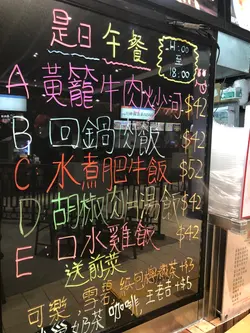 是日午餐
11:00
至
18:00
A 黃 牛肉炒河 $42
B 回鍋肉飯 $42
C 水煮肥牛飯 $52
D 胡椒肉 湯飯 $42
E 口水雞飯 $42
送前菜
可樂 雪碧 茶 +$3
奶茶 咖啡 王老吉 +$5